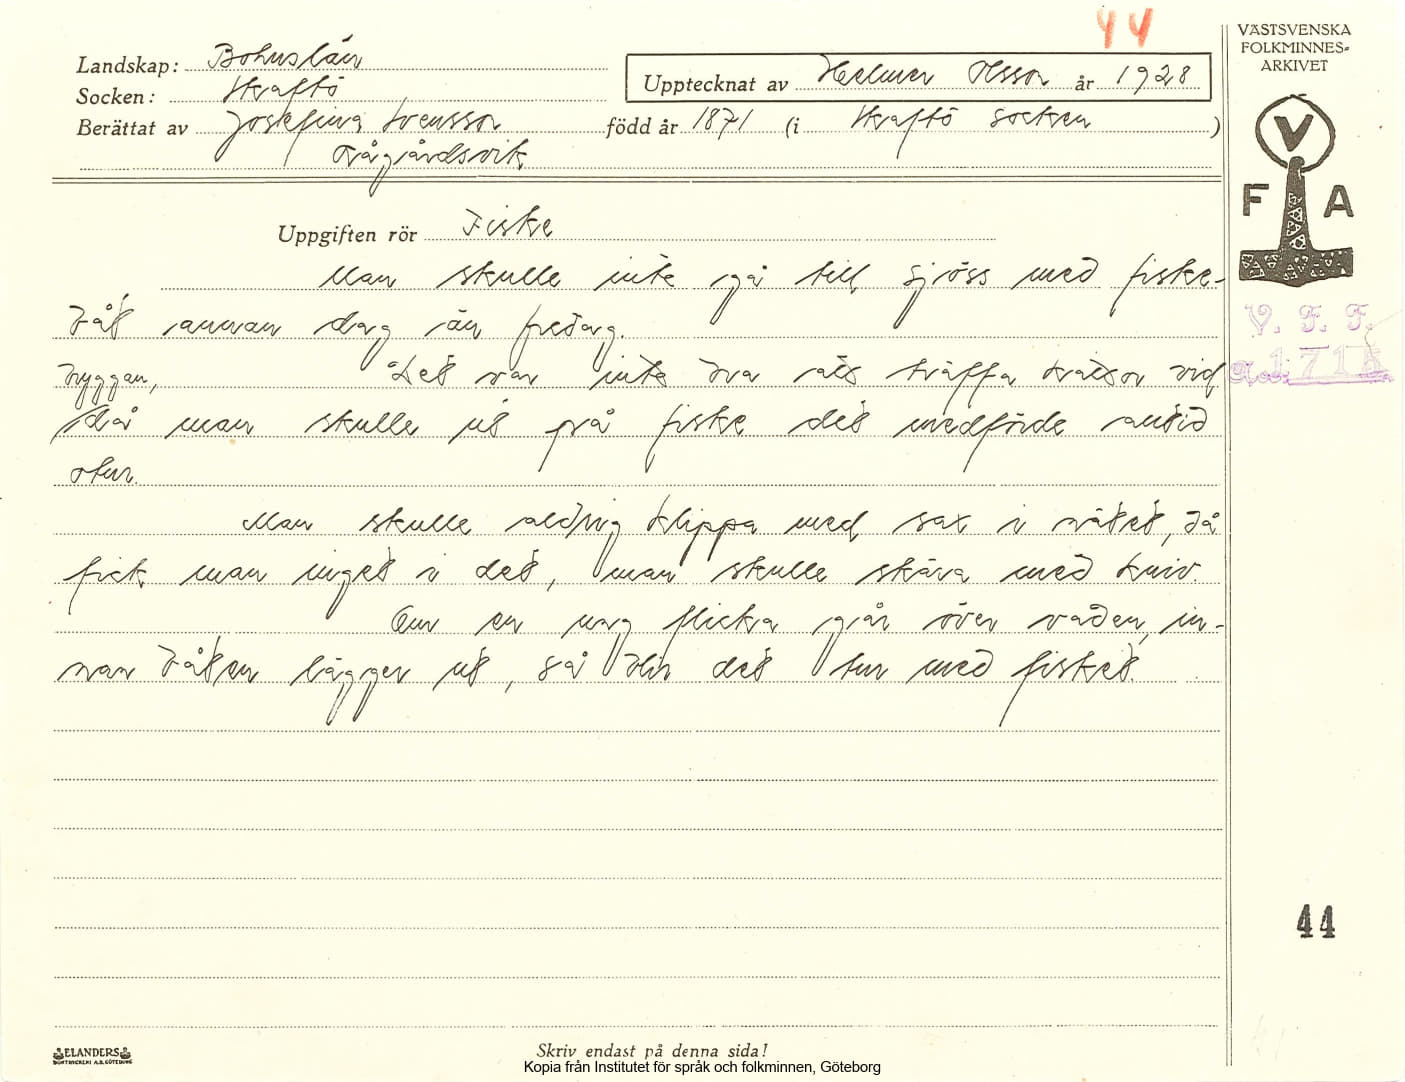 44
VÄSTSVENSKA
FOLKMINNES-
ARKIVET
Landskap: Bohuslän
Socken: Skaftö
Upptecknat av Helmer Olsson år 1928
Berättat av Josefina Svensson född år 1871 (i Skaftö socken)
Rågårdsvik
VFA
Uppgiften rör Fiske
Man skulle inte gå till sjöss med fiske-
båt annan dag än fredag.
Det var inte bra att träffa kvinnor vid
bryggan,
då man skulle ut på fiske det medförde alltid
otur.
Man skulle aldrig klippa med sax i nätet, då
fick man inget i det, man skulle skära med kniv.
Om en ung flicka går över vaden, in-
nan båten lägger ut, så blir det tur med fisket.
V. F. F.
171
44
ELANDERS
BOKTRYCKERI A.B. GÖTEBORG
Skriv endast på denna sida!
Kopia från Institutet för språk och folkminnen, Göteborg